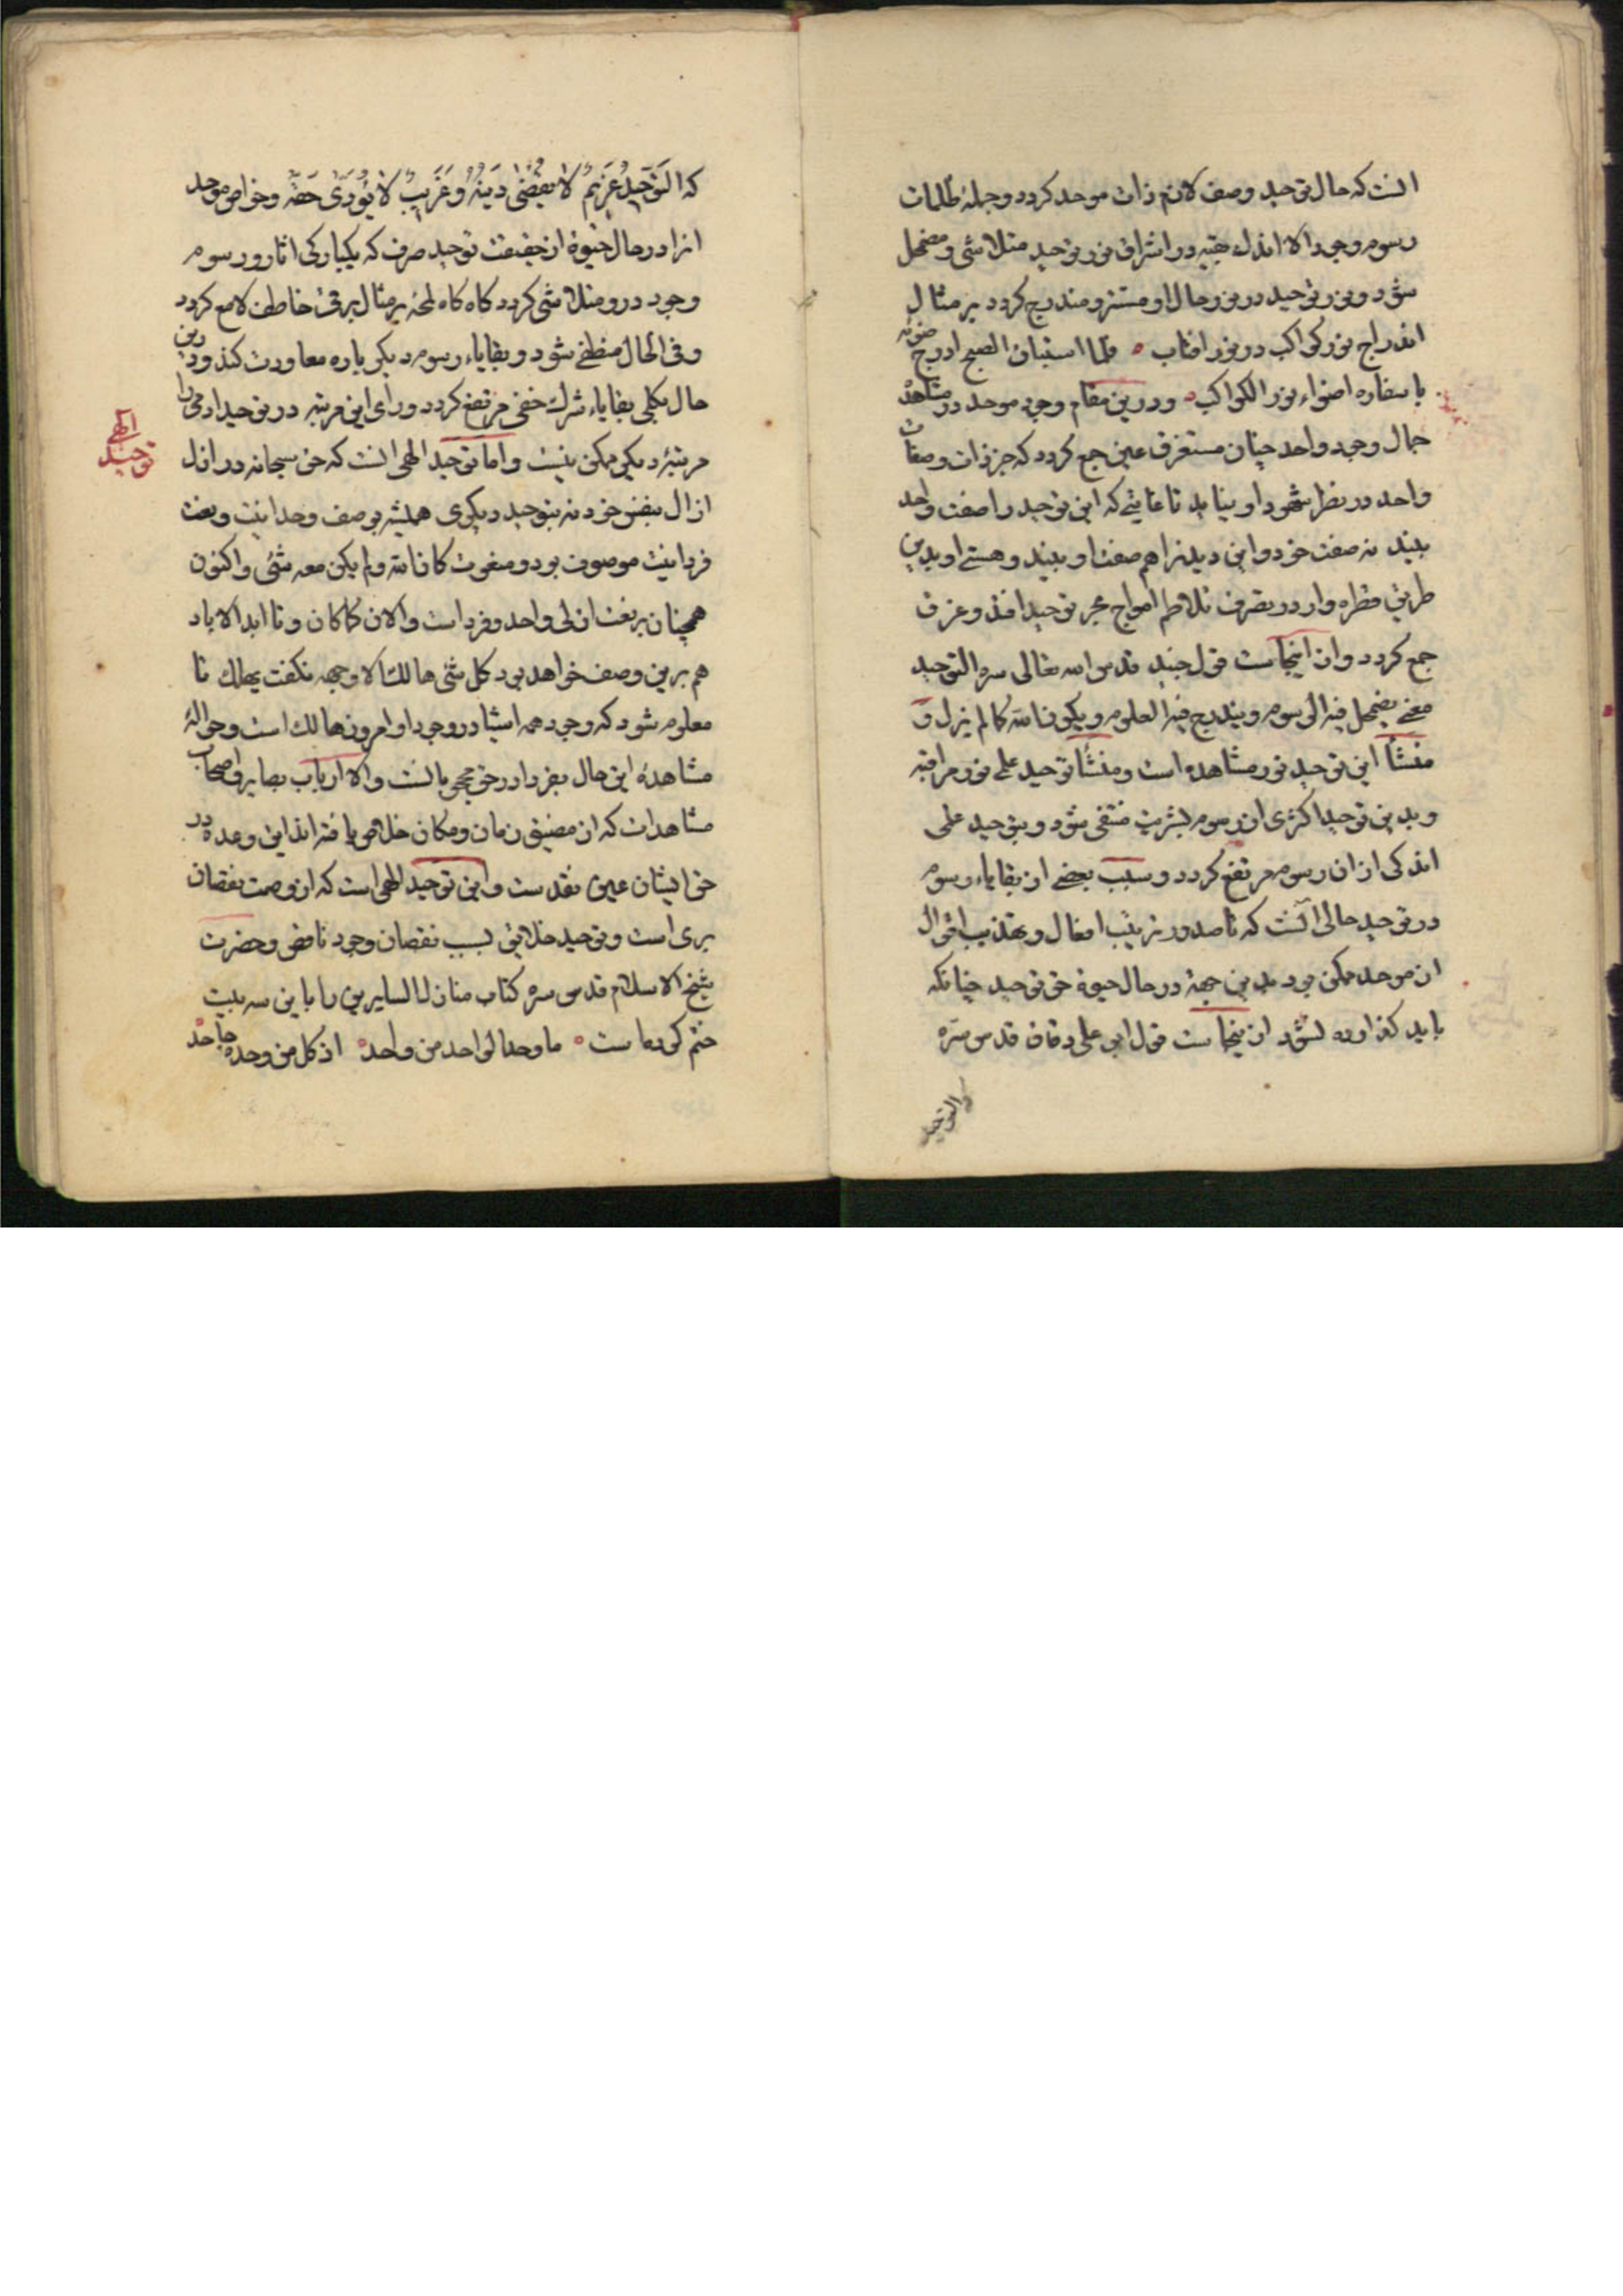 انست که حال توحید وصف لازم ذات موحد کردد و جملهٔ ظلمات
رسوم وجود الا اندك بقیه در اشراق نور توحید متلاشی و مضمحل
شود و نور توحید در نور حال او مستتر و مندرج کردد بر مثال
اندراج نور کواکب در نور افتاب فلما استبان الصبح ادرج ضوئه
باسفاره اضواء نور الکواکب ودرین مقام وجود موحد در مشاهدهٔ
جمال وجود واحد چنان مستغرق عین جمع کردد که جز ذات و صفات
واحد در نظر شهود او نیاید تا غایتی که این توحید را صفت واحد
بیند نه صفت خود و این دیدن را هم صفت او بیند و هستی او بدین
طریق قطره وار در تصرف تلاطم امواج بحر توحید افتد و غرق
جمع کردد و از اینجاست قول جنید قدس الله تعالی سره التوحید
معنی یضمحل فیه الرسوم و یندرج فیه العلوم و یکون الله کما لم یزل و
منشأ این توحید نور مشاهده است و منشأ توحید علمی نور مراقبه
و بدین توحید اکثری از رسوم بشریت منتفی شود و بتوحید علمی
اندکی از ان رسوم مرتفع کردد و سبب بعضی از بقایاء رسوم
در توحید حالی آنست که تا صدور ترتیب افعال و تهذیب اقوال
از موحد ممکن بود بدین جهة در حال حیوة حق توحید چنانکه
باید کذاورده نشود از ینجاست قول ابی علی دقاق قدس سره
التوحید
که التوحید غریم لا یقضی دینه و غریب لا یؤدی حقه و خواص موحد
انرا در حال حیوة از حقیقت توحید صرف که یکبارکی اثار و رسوم
وجود درو متلاشی کردد کاه کاه لمحهٔ بر مثال برق خاطف لامع کردد
وفی الحال منطفی شود و بقایاء رسوم دیکر باره معاودت کند و درین
حال بکلی بقایاء شرك خفی مرتفع کردد و رای این مرتبه در توحید ادمی را
مرتبهٔ دیکر ممکن نیست و اما توحید الهی انست که حق سبحانه در ازل
الهی
توحید
ازال بنفس خود نه بتوحید دیکری همیشه بوصف وحدانیت و نعت
فردانیت موصوف بود و منعوت کان الله ولم یکن معه شئی و اکنون
همچنان بر نعت ازلی واحد و فرد است والان کماکان و تا ابد الاباد
هم برین وصف خواهد بود کل شئ هالك الا وجهه نکفت یهلك تا
معلوم شود که وجود همه اشیا در وجود او امروز هالك است و حوالهٔ
مشاهدهٔ این حال بفردا در حق محجوبانست والا ارباب بصایر و اصحاب
مشاهدات که از مضیق زمان و مکان خلاص یافته اند این وعده در
حق ایشان عین نقدست و این توحید الهی است که از وصمت نقصان
بری است و توحید خلایق بسبب نقصان وجود ناقص و حضرت
شیخ الاسلام قدس سره کتاب منازل السایرین را باین سه بیت
ختم کرده است ما وحد الواحد من واحد اذ کل من وحده جاحد